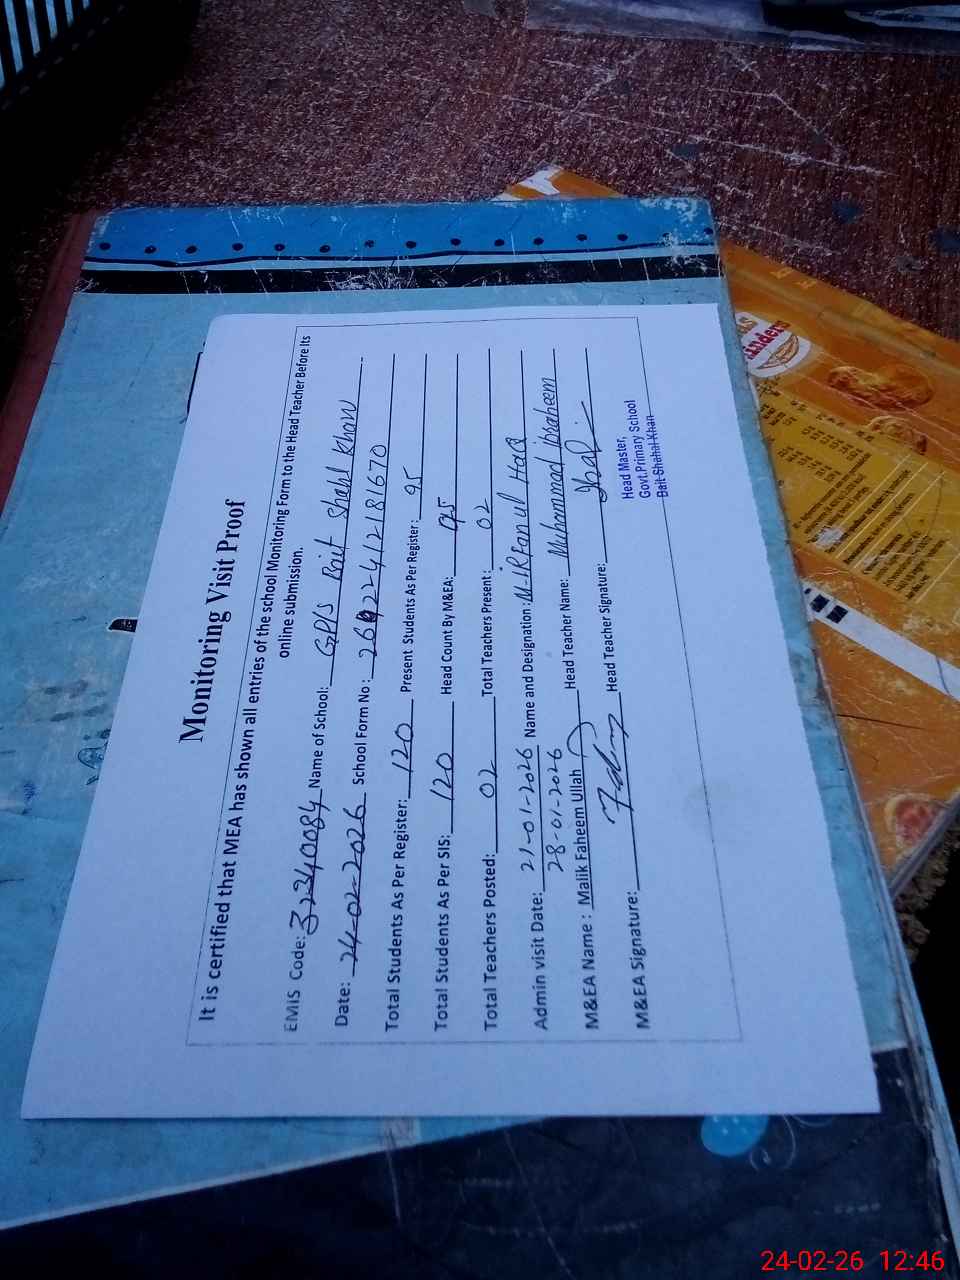 Monitoring Visit Proof
It is certified that MEA has shown all entries of the school Monitoring Form to the Head Teacher Before Its
online submission.
EMIS Code: 32340084 Name of School: GP/S Bait Shahl Khan
Date: 24-02-2026 School Form No: 26922412181670
Total Students As Per Register: 120 Present Students As Per Register: 95
Total Students As Per SIS: 120 Head Count By M&EA: 95
Total Teachers Posted: 02 Total Teachers Present: 02
Admin visit Date: 21-01-2026 Name and Designation: M-IRFan ul HaQ
28-01-2026
M&EA Name: Malik Faheem Ullah Head Teacher Name: Muhammad Ibraheem
M&EA Signature: Head Teacher Signature:
Head Master,
Govt.Primary School
Bait Shahal Khan
24-02-26 12:46